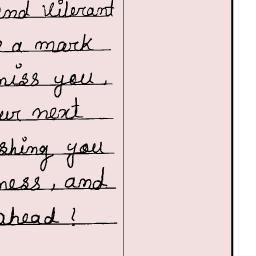 and vibrant
a mark
miss you,
ur next
shing you
ness, and
ahead!